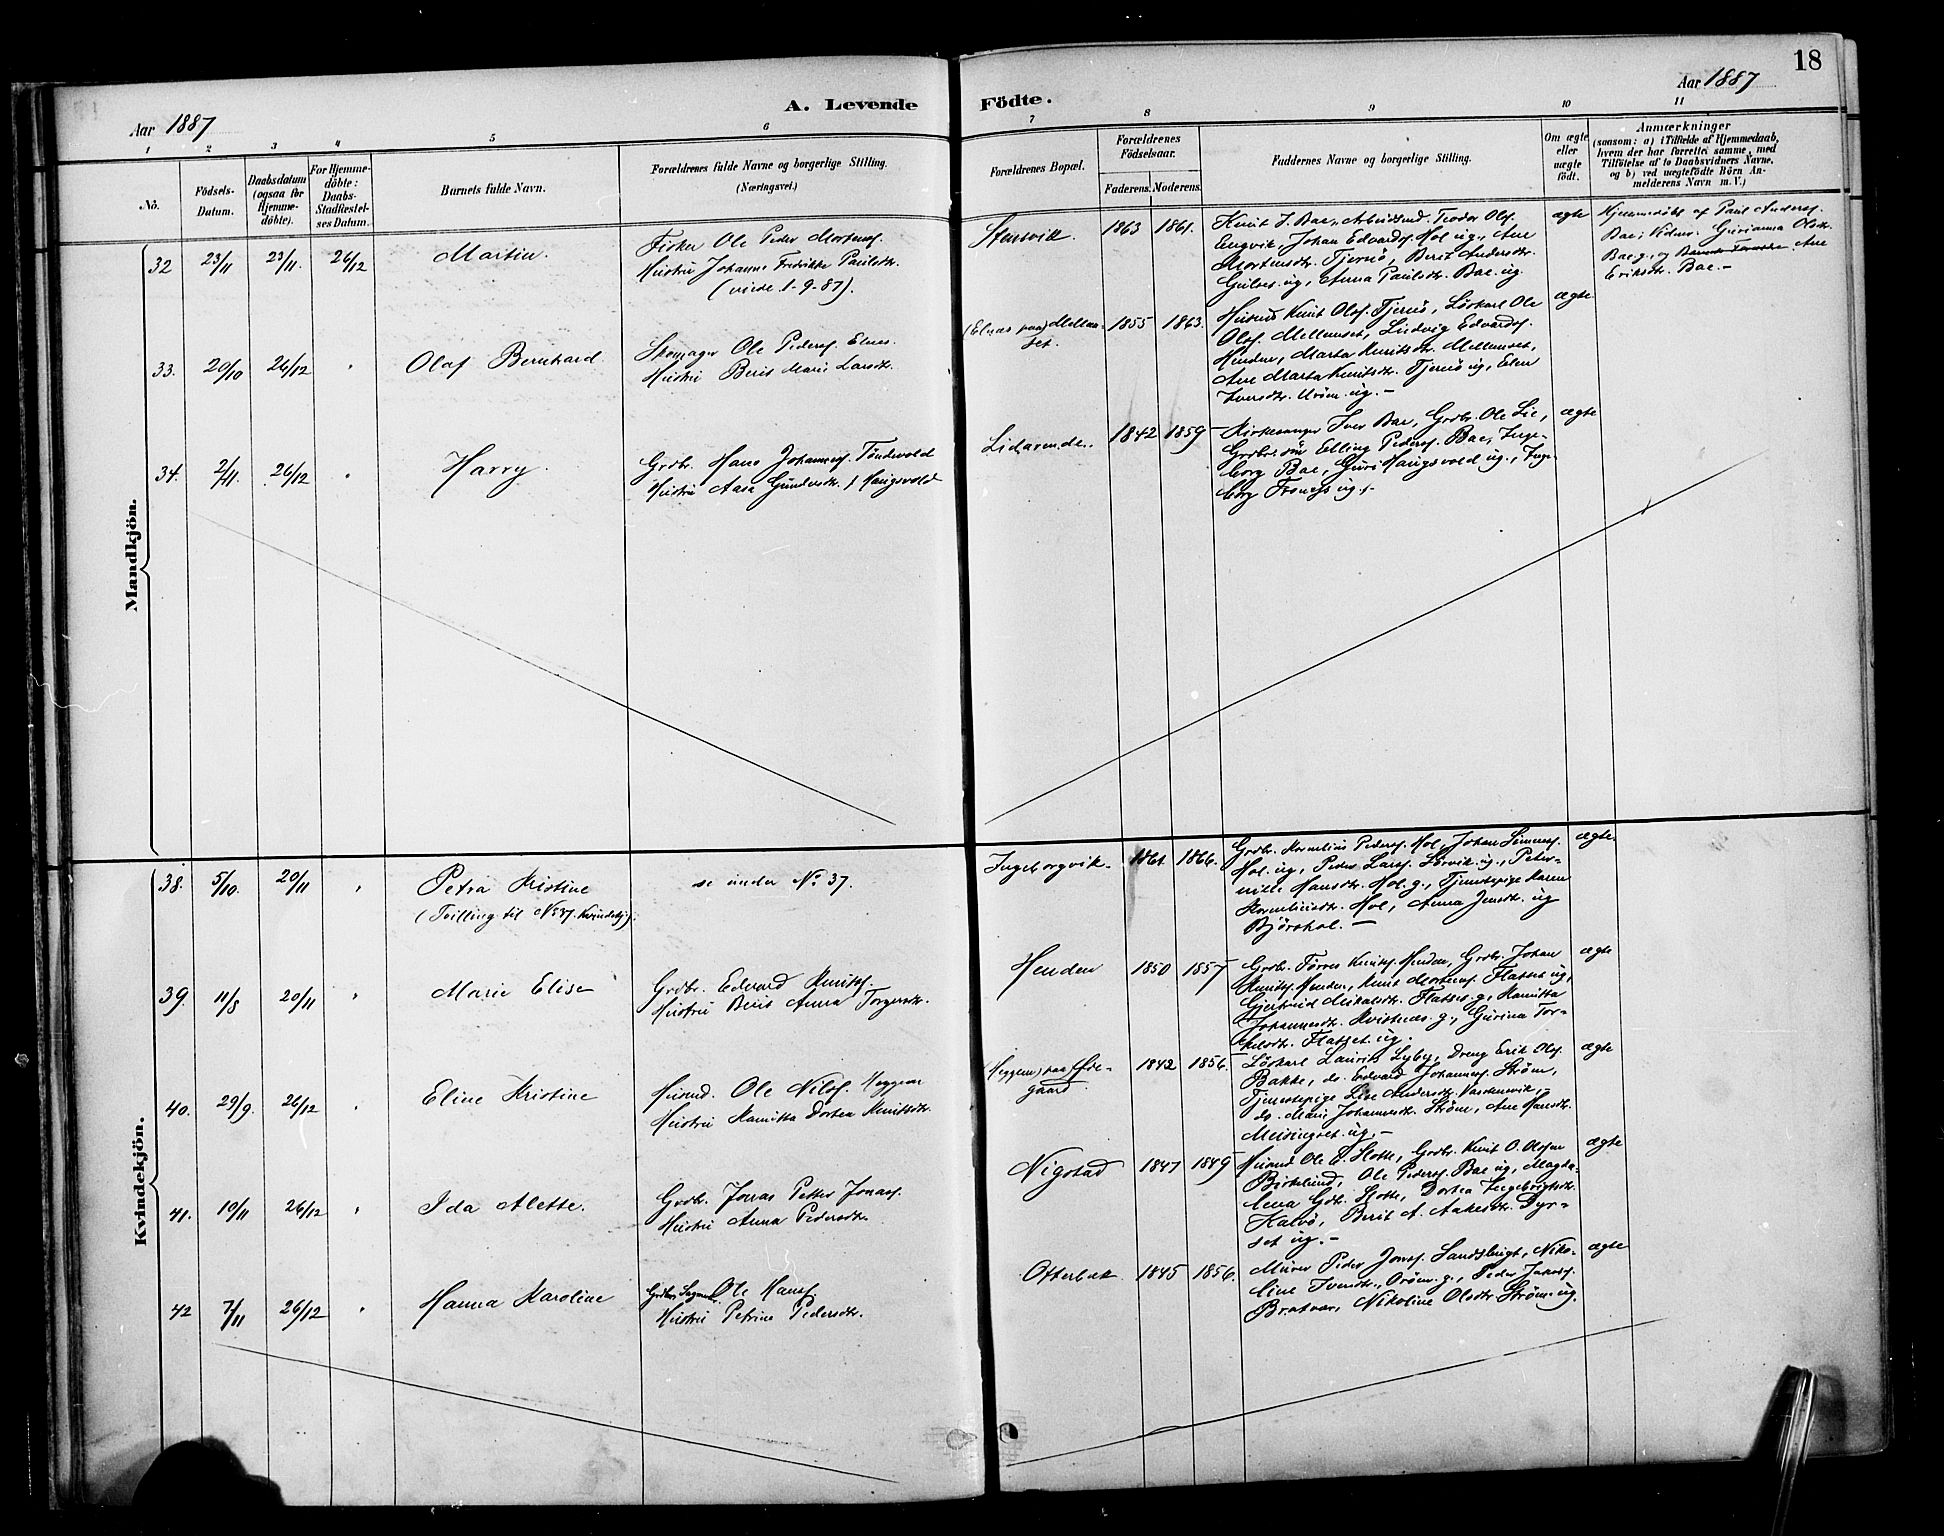 18
Aar 1887
A. Levende Födte.
Aar 1887
1 2 3 4 5 6 7 8 9 10 11
Nö.
Födsels-Datum.
Daabsdatum (ogsaa för Hjemme-döbte).
For Hjemme-döbte: Daabs-Stadfæstel-ses Datum.
Barnets fulde Navn.
Forældrenes fulde Navne og borgerlige Stilling.
(Næringsvei.)
Forældrenes Bopæl.
Forældrenes Födselsaar.
Faderens. Moderens.
Faddernes Navne og borgerlige Stilling.
Om ægte eller uægte födt.
Anmærkninger
(saasom: a) i Tilfælde af Hjemmedaab,
hvem der har forrettet samme, med
Tilföielse af to Daabsvidners Navne,
og b) ved uægtefödte Börn An-
melderens Navn m. V.)
Mandkjön.
32 23/11 23/11. 26/12 Martin.
Fisker Ole Peder Mortenss.
Hustru Johanne Fredrikke Paulsdtr.
(viede 1-9-87).
Stensvik. 1863 1861.
Knut I. Bae, Arbeidsmd. Teodor Ols.
Engvik, Johan Edvards. Hol ug., Ane
Mortensdtr. Tjernö, Berit Andersdtr.
Gulses. ug, Anna Paulsdtr. Bae. ug.
ægte
Hjemmedöbt af Paul Anderss.
Bae; Vidner: Gurianna Olsdtr.
Bae g. og Ane
Eriksdtr. Bae.-
33. 20/10 26/12 " Olaf Bernhard.
Skomager Ole Peders. Elnes.
Hustru Berit Marie Larsdtr.
(Elnes paa) Mellem-
set.
1855 1863.
Husmd Knut Ols. Tjernö, Löskarl Ole
Ols. Mellemset, Ludvig Edvards.
Henden, Marta Knutsdtr. Mellemset,
Ane Marta Knutsdtr. Tjernö ug, Elen
Iversdtr. Uröm. ug.-
ægte
34. 2/11. 26/12 " Harry.
Grdbr. Hans Johanness. Töndevold
Hustru Aasa Gundersdtr. f. Haugsvold
Lidarende. 1842 1859
Kirkesanger Iver Bae, Grdbr. Ole Lie,
Grdbrsön Elling Peders. Bae, Inge-
borg Bae, Guri Haugsvold ug., Inge-
borg ug.-
ægte
Kvindekjön.
38. 5/10. 20/11 " Petra Kristine
(Tvilling til No 37. Kvindekj.)
se under No. 37.
Ingeborgvik. 1861. 1866.
Grdbr. Kornelius Peders. Hol, Johan
Hol. ug., Peder Larss. Lervik. ug., Peter-
nille Hansdtr. Hol. g., Tjenestepige Karen
Korneliusdtr. Hol, Anna Jensdtr. ug
Björshol.-
ægte.
39. 11/8 20/11 " Marie Elise
Grdbr. Edvard Knutss.
Hustru Berit Anna Torgersdtr.
Henden 1850 1857
Grdbr. Törres Knutss. Henden, Grdbr. Johan
Knutss. Henden, Knut Mortenss. Flatset ug,
Gjertrud Mikalsdtr. Flatset. g., Hanitta
Johannesdtr. Kvistnæs. g., Gurina Tor-
kelsdtr. Flatset. ug.
ægte
40. 29/9. 26/12 " Eline Kristine
Husmd. Ole Nils. Heggem
Hustru Hanitta Dortea Knutsdtr.
(Heggem) paa Öde-
gaard.
1842 1856.
Löskarl Laurits Lyby, Dreng Erik Ols.
Bakke, do. Edvard Johanness. Ström,
Tjenestepige Lise Andersdtr. Vaskenvik,
do. Marie Johannesdtr. Ström, Ane Hansdtr.
Meisingset. ug.-
ægte
41. 10/11 26/12 " Ida Alette.
Grdbr. Jonas Petter Jonass.
Hustru Anna Pedersdtr.
Nigstad 1847 1849
Husmd Ole P. Slotte, Grdbr. Knut O. Olsen
Birkelund, Ole Peders. Bae ug, Magda-
lena Gdtr. Slotte, Dortea Ingebrigtsdtr.
Kalvö, Berit A. Aakesdtr. Dyr-
set ug.-
ægte
42 7/11 26/12 " Hanna Karoline
Grdbr. Ole Hanss.
Hustru Petrine Pedersdtr.
Otterbæk. 1845 1856.
Murer Peder Jonss. Sandsbugt, Niko-
line Iversdtr. Oröm. g., Peder Jakobs.
Bratvær, Nikoline Olsdtr. Ström. ug.
ægte